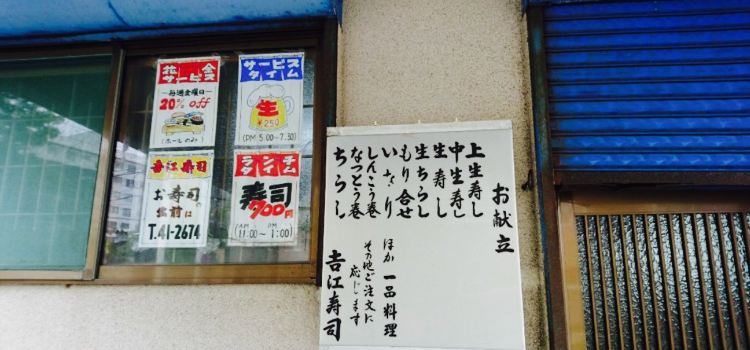 花金
サービス
―毎週金曜日―
20% off
(ホールのみ)
サービス
タイム
生
¥250
(PM 5:00~7:30)
吉江寿司
お寿司。
出前は
T.41-2674
ランチ
タイム
寿司
700円
(AM 11:00~PM 1:00)
お献立
上生寿し
中生寿し
生寿し
生ちらし
もり合せ
いなり
しんこう巻
なっとう巻
ちらし
ほか 一品料理
その他ご注文に
応じます
吉江寿司